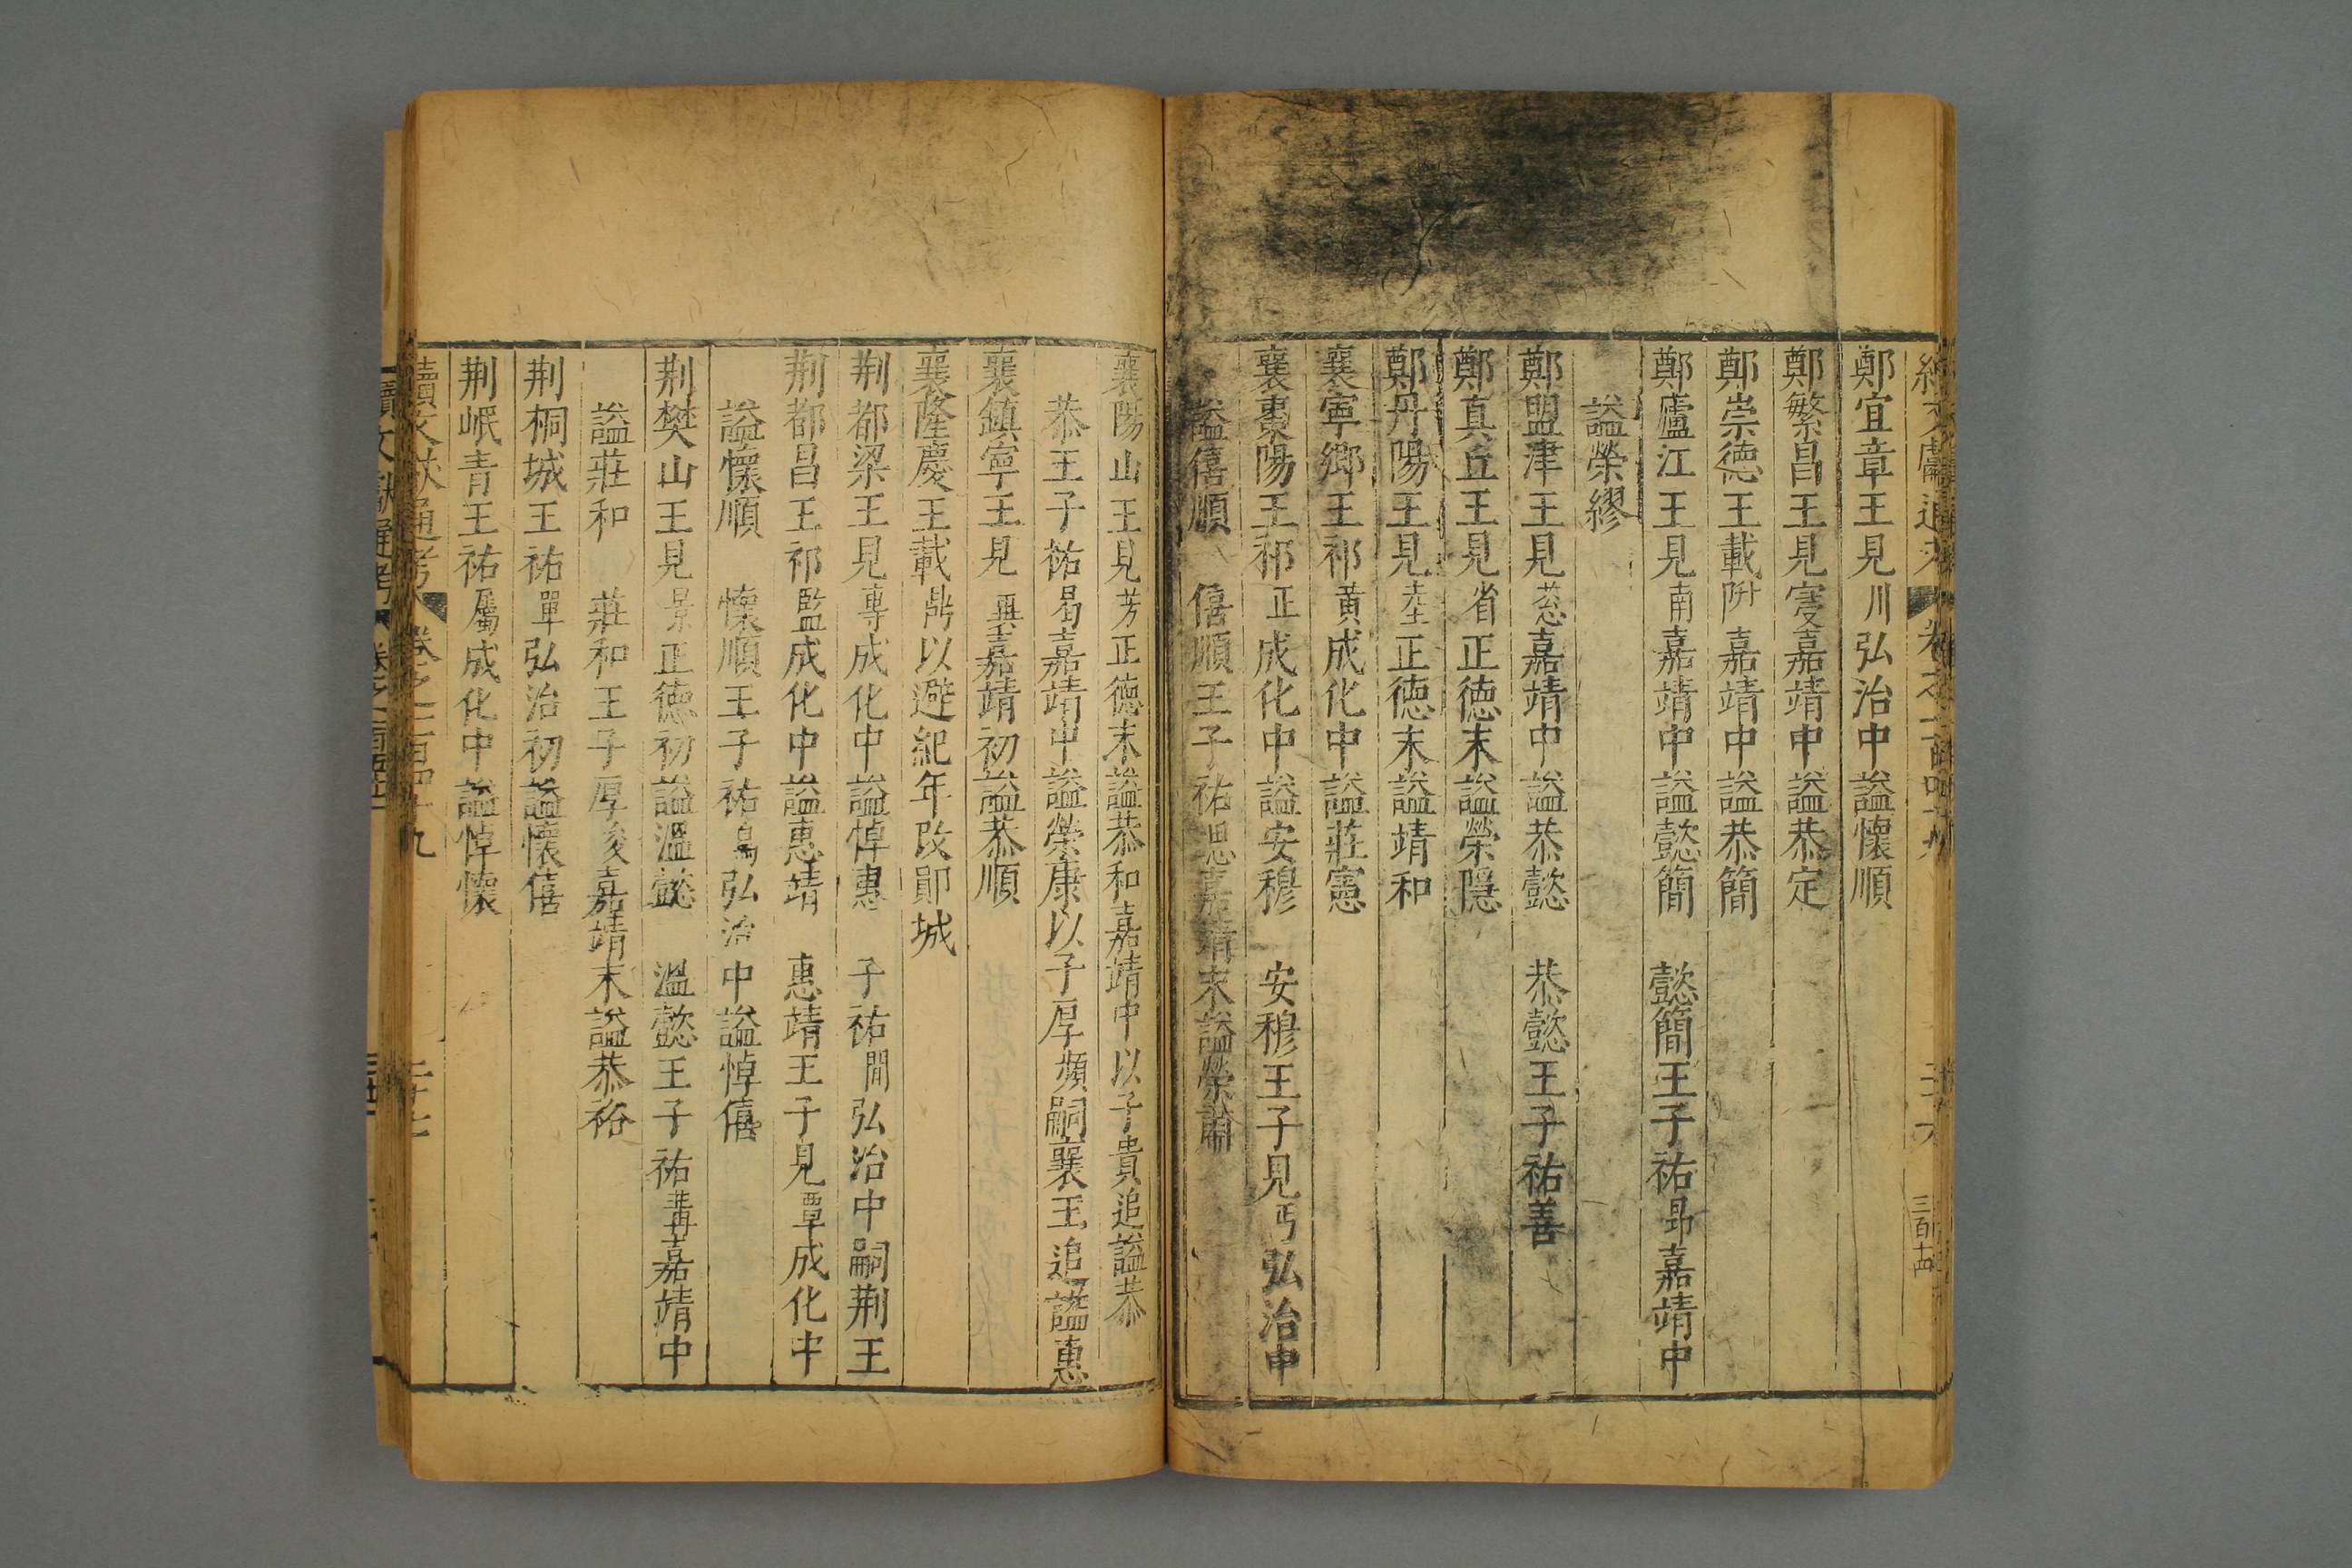 續文獻通考 卷之一百四十九 三百十四
鄭宜章王見川弘治中謚懷順
鄭繁昌王見寔嘉靖中謚恭定
鄭崇德王載阩嘉靖中謚恭簡
鄭廬江王見湳嘉靖中謚懿簡 懿簡王子祐昻嘉靖中
謚榮繆
鄭盟津王見嘉靖中謚恭懿 恭懿王子祐善
鄭真丘王見省正德末謚榮隱
鄭丹陽王見正德末謚靖和
襄寧鄉王祁黄成化中謚莊憲
襄棗陽王祁正成化中謚安穆 安穆王子見弘治中
謚僖順 僖順王子祐嘉靖末謚榮
襄陽山王見芳正德末謚恭和嘉靖中以子貴追謚恭
恭王子祐曷嘉靖中謚榮康以子厚熲嗣襄王追謚惠
襄鎮寧王見嘉靖初謚恭順
襄隆慶王載以避紀年改鄖城
荆都梁王見專成化中謚悼惠 子祐閒弘治中嗣荆王
荆都昌王祁監成化中謚惠靖 惠靖王子見覃成化中
謚懷順 懷順王子祐弘治中謚悼僖
荆樊山王見景正德初謚溫懿 溫懿王子祐嘉靖中
謚莊和 莊和王子厚嘉靖末謚恭裕
荆桐城王祐單弘治初謚懷僖
荆岷青王祐屬成化中謚悼懷
續文獻通考 卷之一百四十九 二十七
續文獻通考